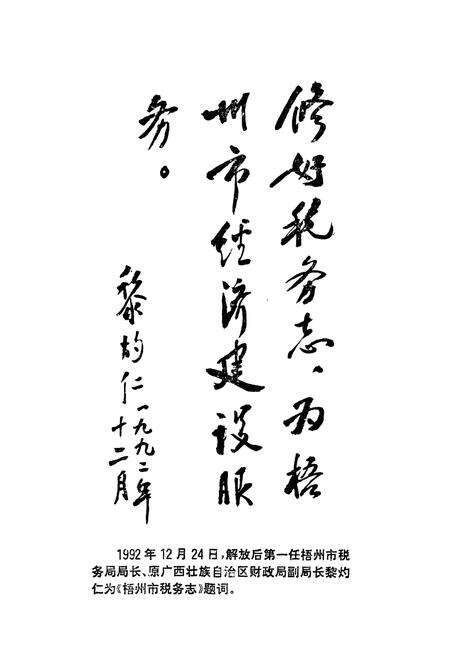 修好税务志、为梧
州市经济建设服
务。
黎灼仁一九九二年
十二月
1992年12月24日,解放后第一任梧州市税
务局局长、原广西壮族自治区财政局副局长黎灼
仁为《梧州市税务志》题词。